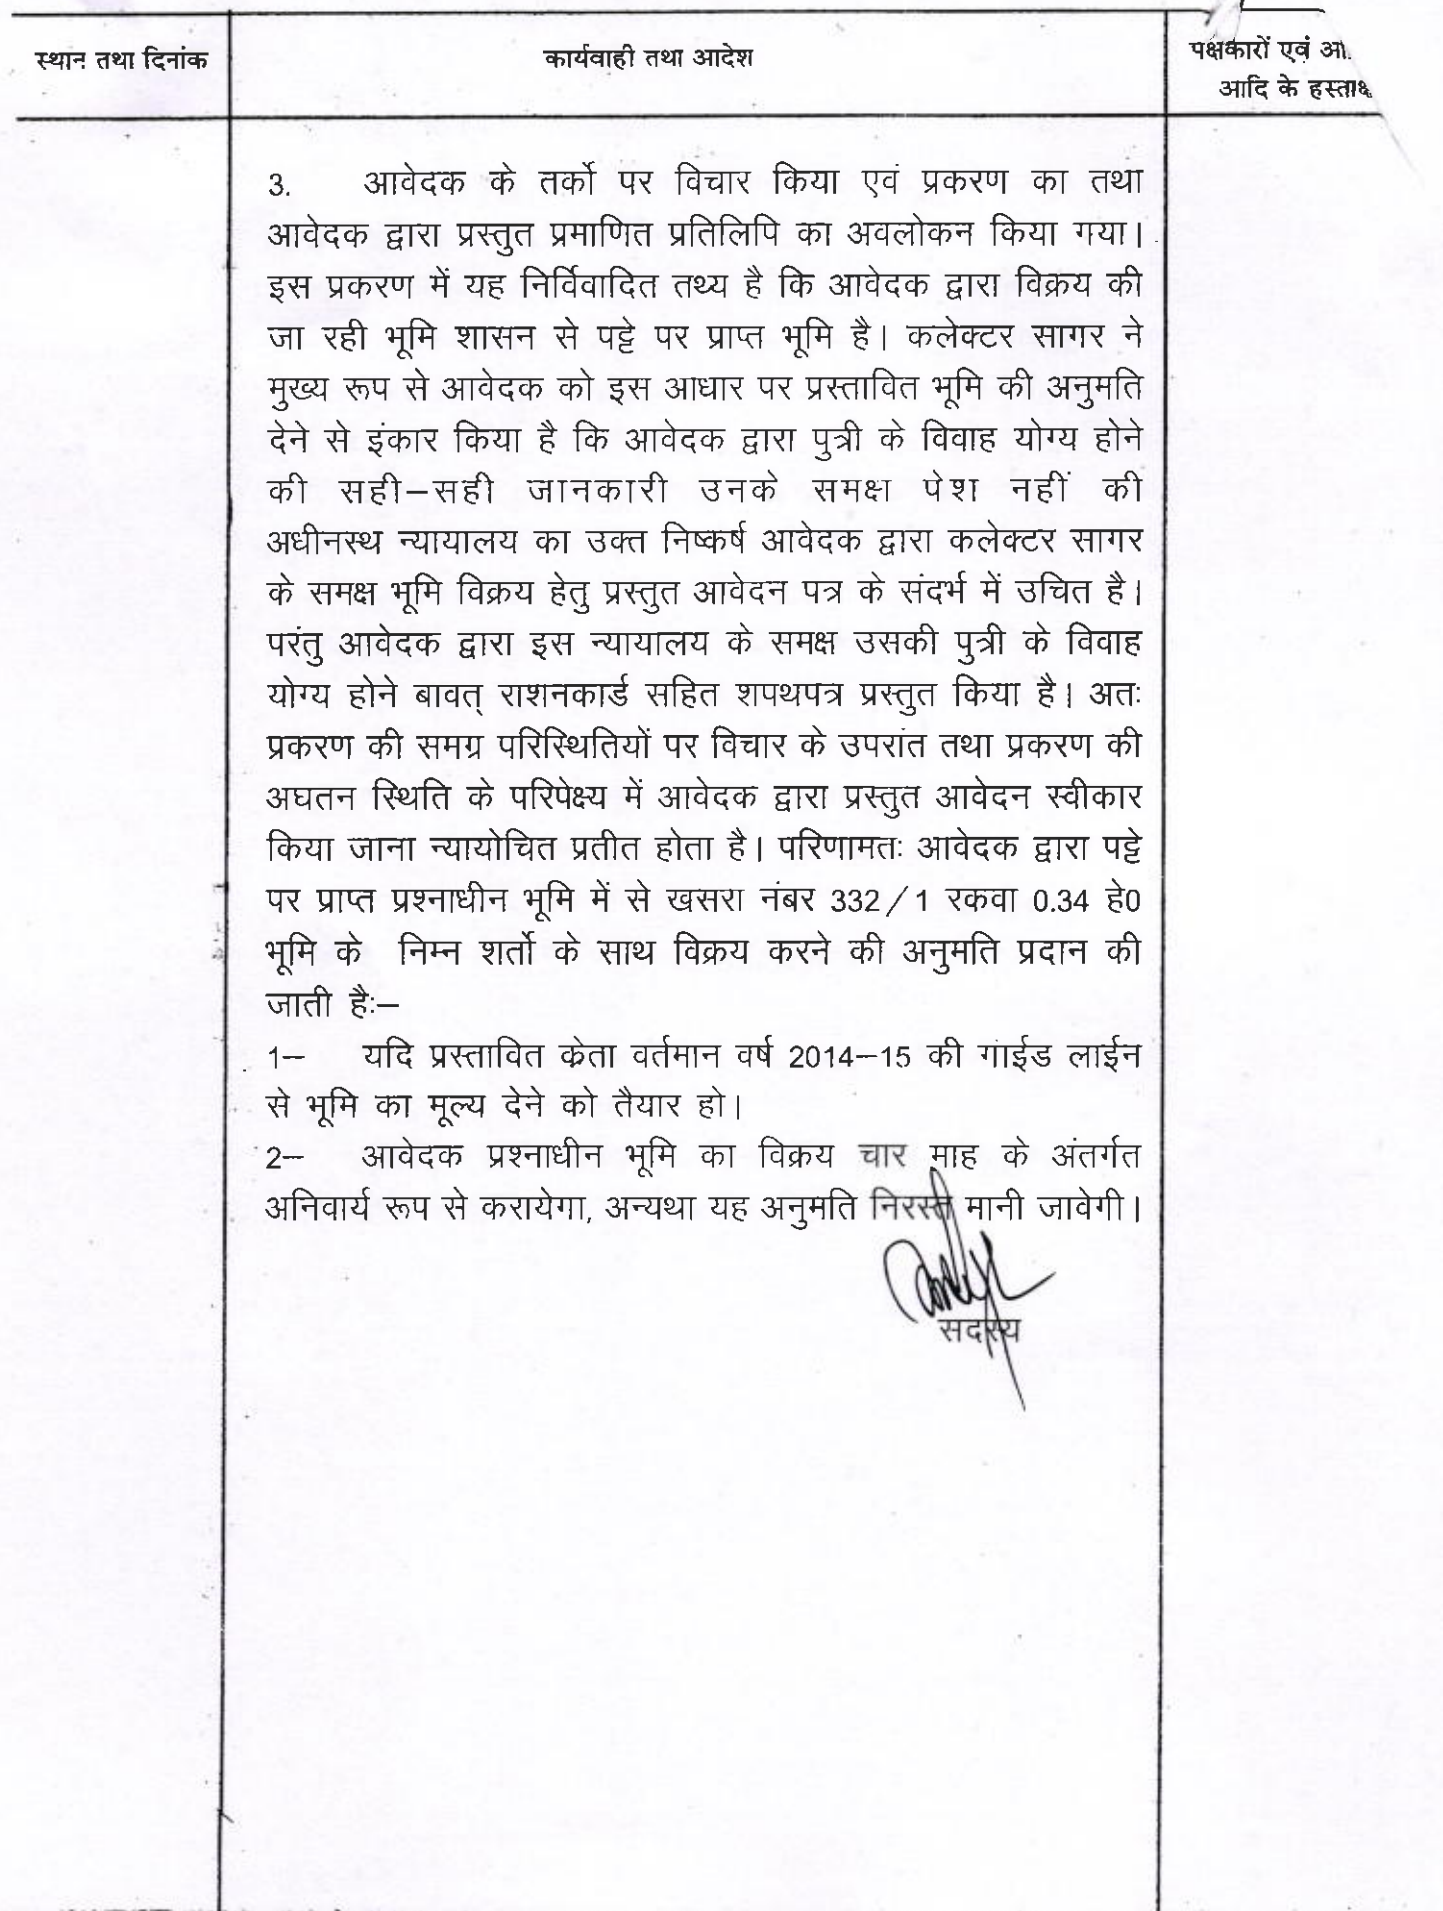 स्थान तथा दिनांक
कार्यवाही तथा आदेश
पक्षकारों एवं
आदि के
3. आवेदक के तर्को पर विचार किया एवं प्रकरण का तथा
आवेदक द्वारा प्रस्तुत प्रमाणित प्रतिलिपि का अवलोकन किया गया।
इस प्रकरण में यह निर्विवादित तथ्य है कि आवेदक द्वारा विक्रय की
जा रही भूमि शासन से पट्टे पर प्राप्त भूमि है। कलेक्टर सागर ने
मुख्य रूप से आवेदक को इस आधार पर प्रस्तावित भूमि की अनुमति
देने से इंकार किया है कि आवेदक द्वारा पुत्री के विवाह योग्य होने
की सही–सही जानकारी उनके समक्ष पेश नहीं की
अधीनस्थ न्यायालय का उक्त निष्कर्ष आवेदक द्वारा कलेक्टर सागर
के समक्ष भूमि विक्रय हेतु प्रस्तुत आवेदन पत्र के संदर्भ में उचित है।
परंतु आवेदक द्वारा इस न्यायालय के समक्ष उसकी पुत्री के विवाह
योग्य होने बावत् राशनकार्ड सहित शपथपत्र प्रस्तुत किया है। अतः
प्रकरण की समग्र परिस्थितियों पर विचार के उपरांत तथा प्रकरण की
अघतन स्थिति के परिपेक्ष्य में आवेदक द्वारा प्रस्तुत आवेदन स्वीकार
किया जाना न्यायोचित प्रतीत होता है। परिणामतः आवेदक द्वारा पट्टे
पर प्राप्त प्रश्नाधीन भूमि में से खसरा नंबर 332/1 रकवा 0.34 हे0
भूमि के निम्न शर्तो के साथ विक्रय करने की अनुमति प्रदान की
जाती हैः–
1– यदि प्रस्तावित केता वर्तमान वर्ष 2014–15 की गाईड लाईन
से भूमि का मूल्य देने को तैयार हो।
2– आवेदक प्रश्नाधीन भूमि का विक्रय चार माह के अंतर्गत
अनिवार्य रूप से करायेगा, अन्यथा यह अनुमति निरस्त मानी जावेगी।
सदस्य